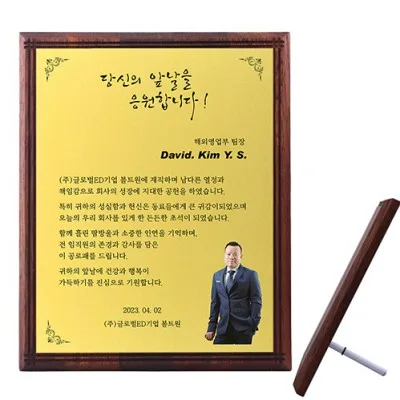 당신의 앞날을
응원합니다!
해외영업부 팀장
David. Kim Y. S.
(주)글로벌ED기업 봄트원에 재직하며 남다른 열정과
책임감으로 회사의 성장에 지대한 공헌을 하였습니다.
특히 귀하의 성실함과 헌신은 동료들에게 큰 귀감이되었으며
오늘의 우리 회사를 있게 한 든든한 초석이 되었습니다.
함께 흘린 땀방울과 소중한 인연을 기억하며,
전 임직원의 존경과 감사를 담은
이 공로패를 드립니다.
귀하의 앞날에 건강과 행복이
가득하기를 진심으로 기원합니다.
2023. 04. 02
(주)글로벌ED기업 봄트원